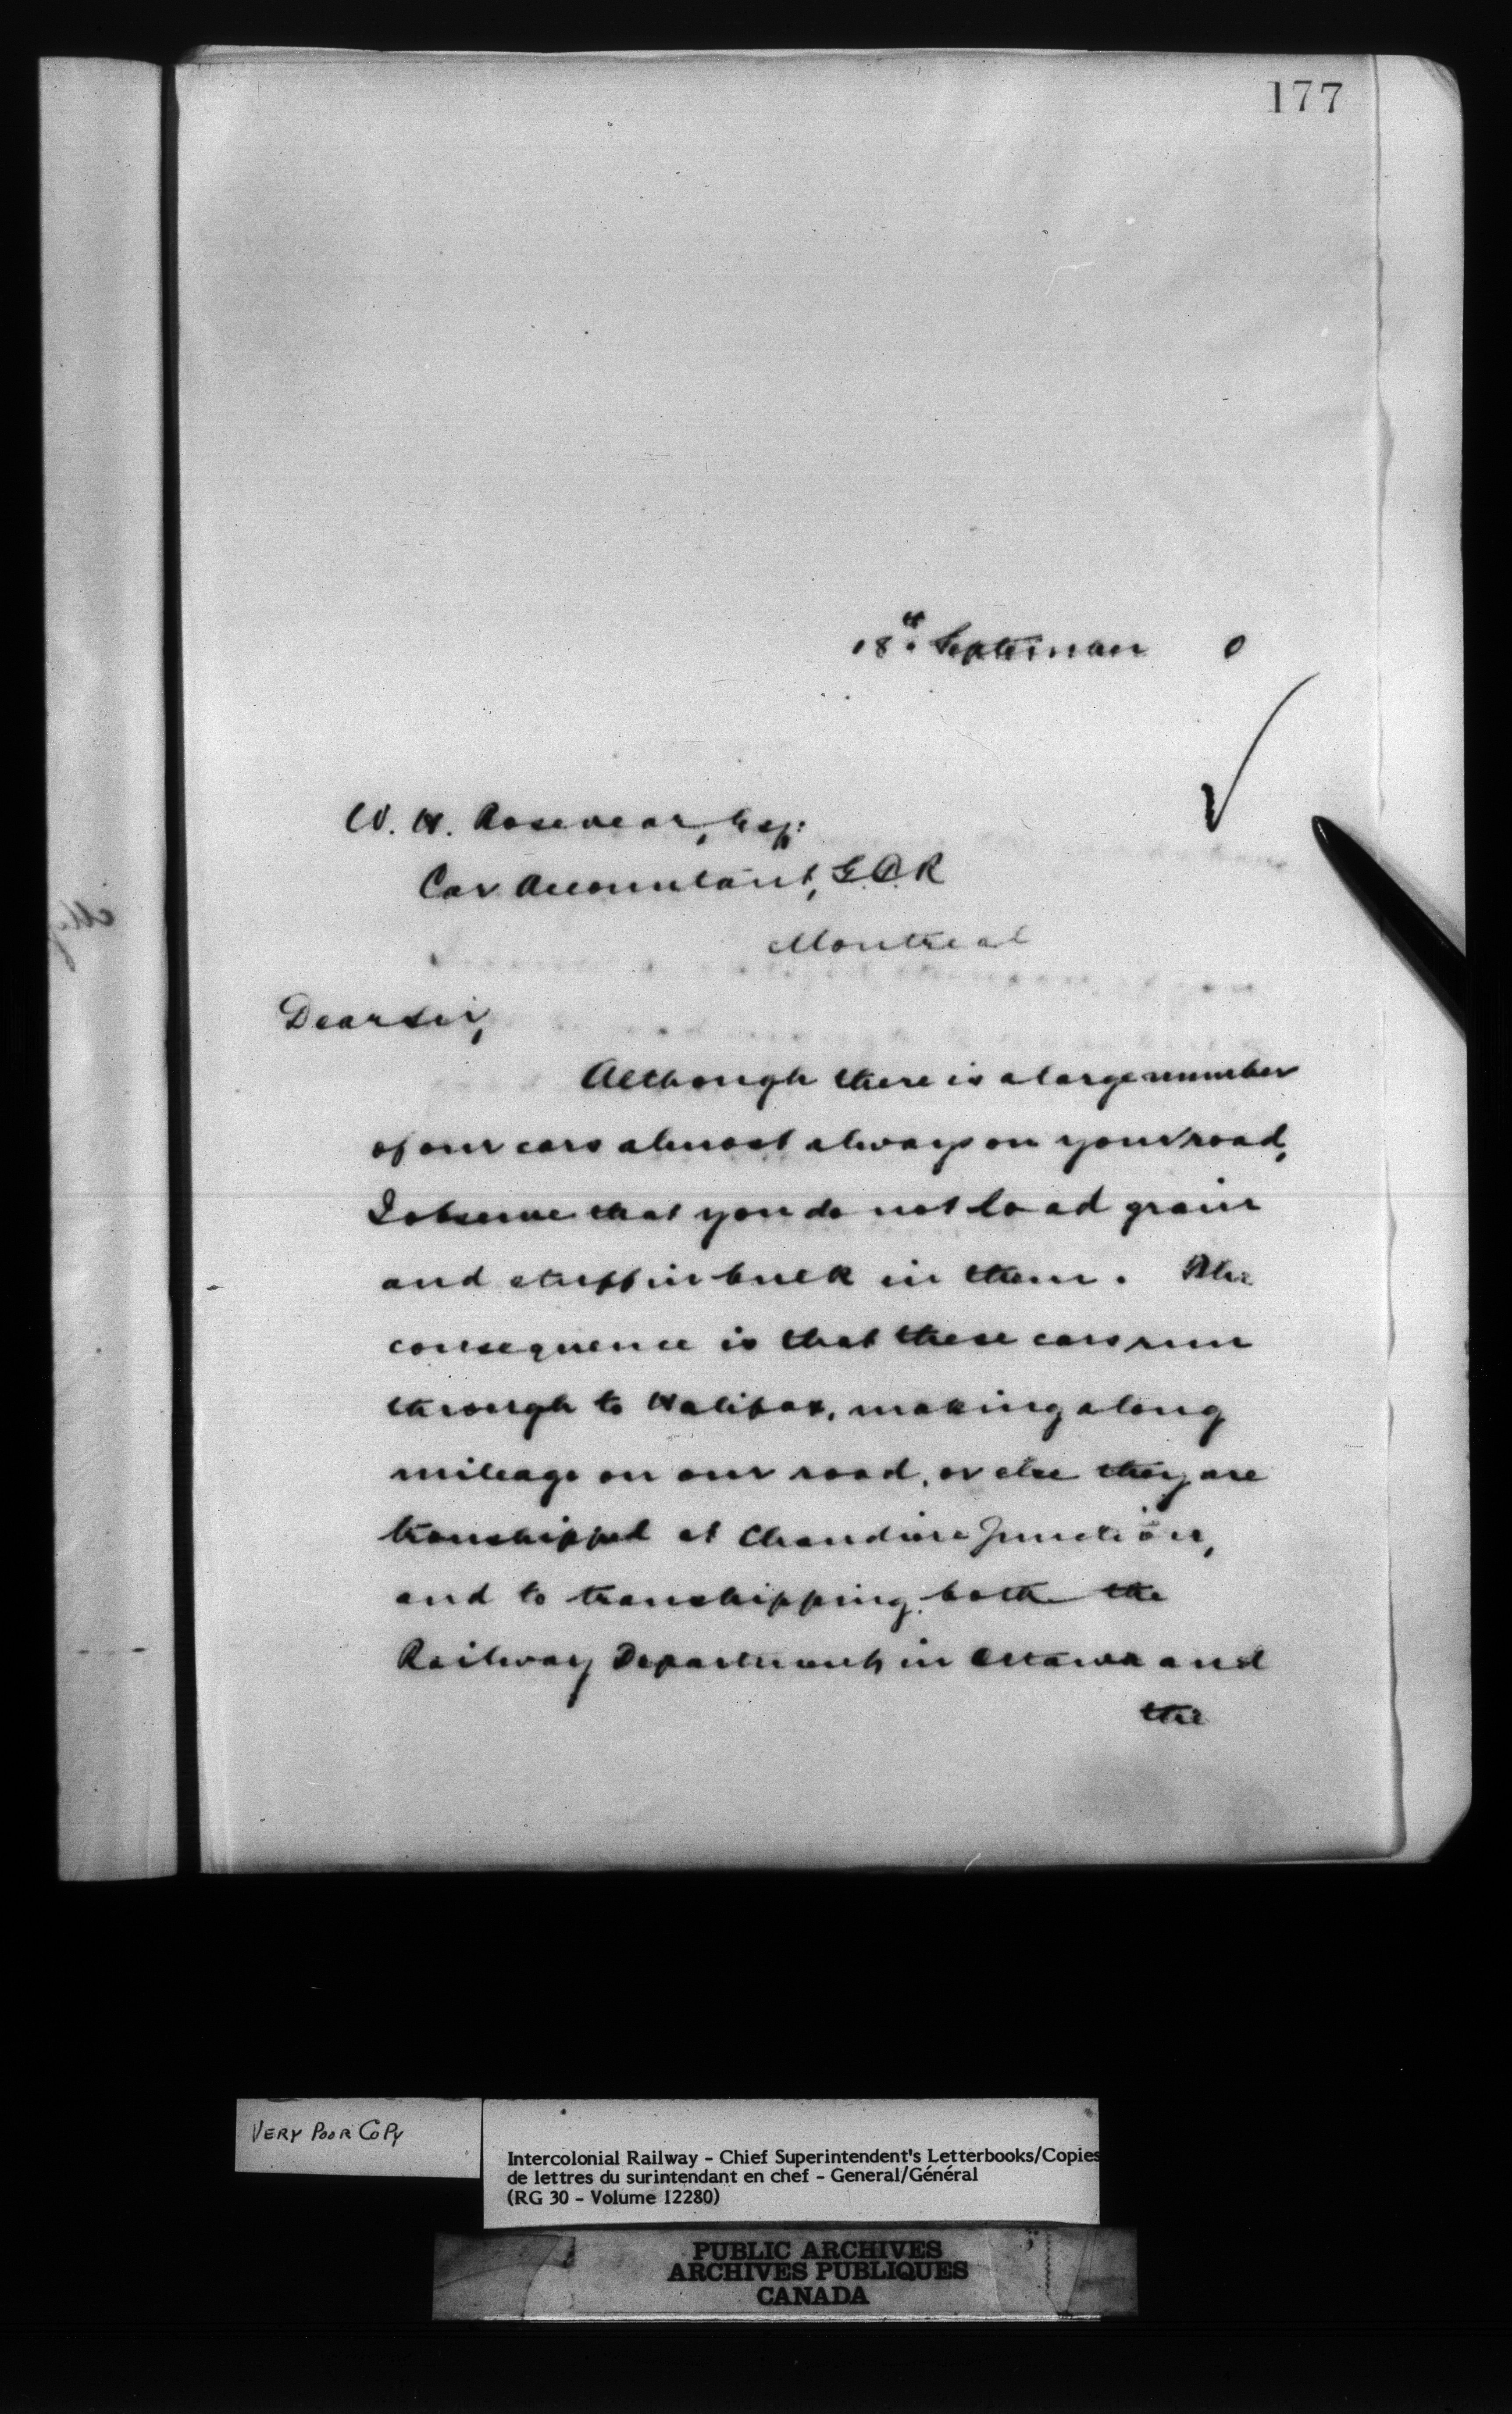 177
18th September 0
W. H. Rosevear, Esq:
Car Accountant, G.T.R
Montreal
Dear Sir,
Although there is a large number
of our cars almost always on your road,
I observe that you do not load grain
and stuff in bulk in them. The
consequence is that these cars run
through to Halifax, making a long
mileage on our road, or else they are
transhipped at Chaudiere Junction,
and to transhipping both the
Railway Department in Ottawa and
the
VERY POOR COPY
Intercolonial Railway - Chief Superintendent's Letterbooks/Copies
de lettres du surintendant en chef - General/Général
(RG 30 - Volume 12280)
PUBLIC ARCHIVES
ARCHIVES PUBLIQUES
CANADA